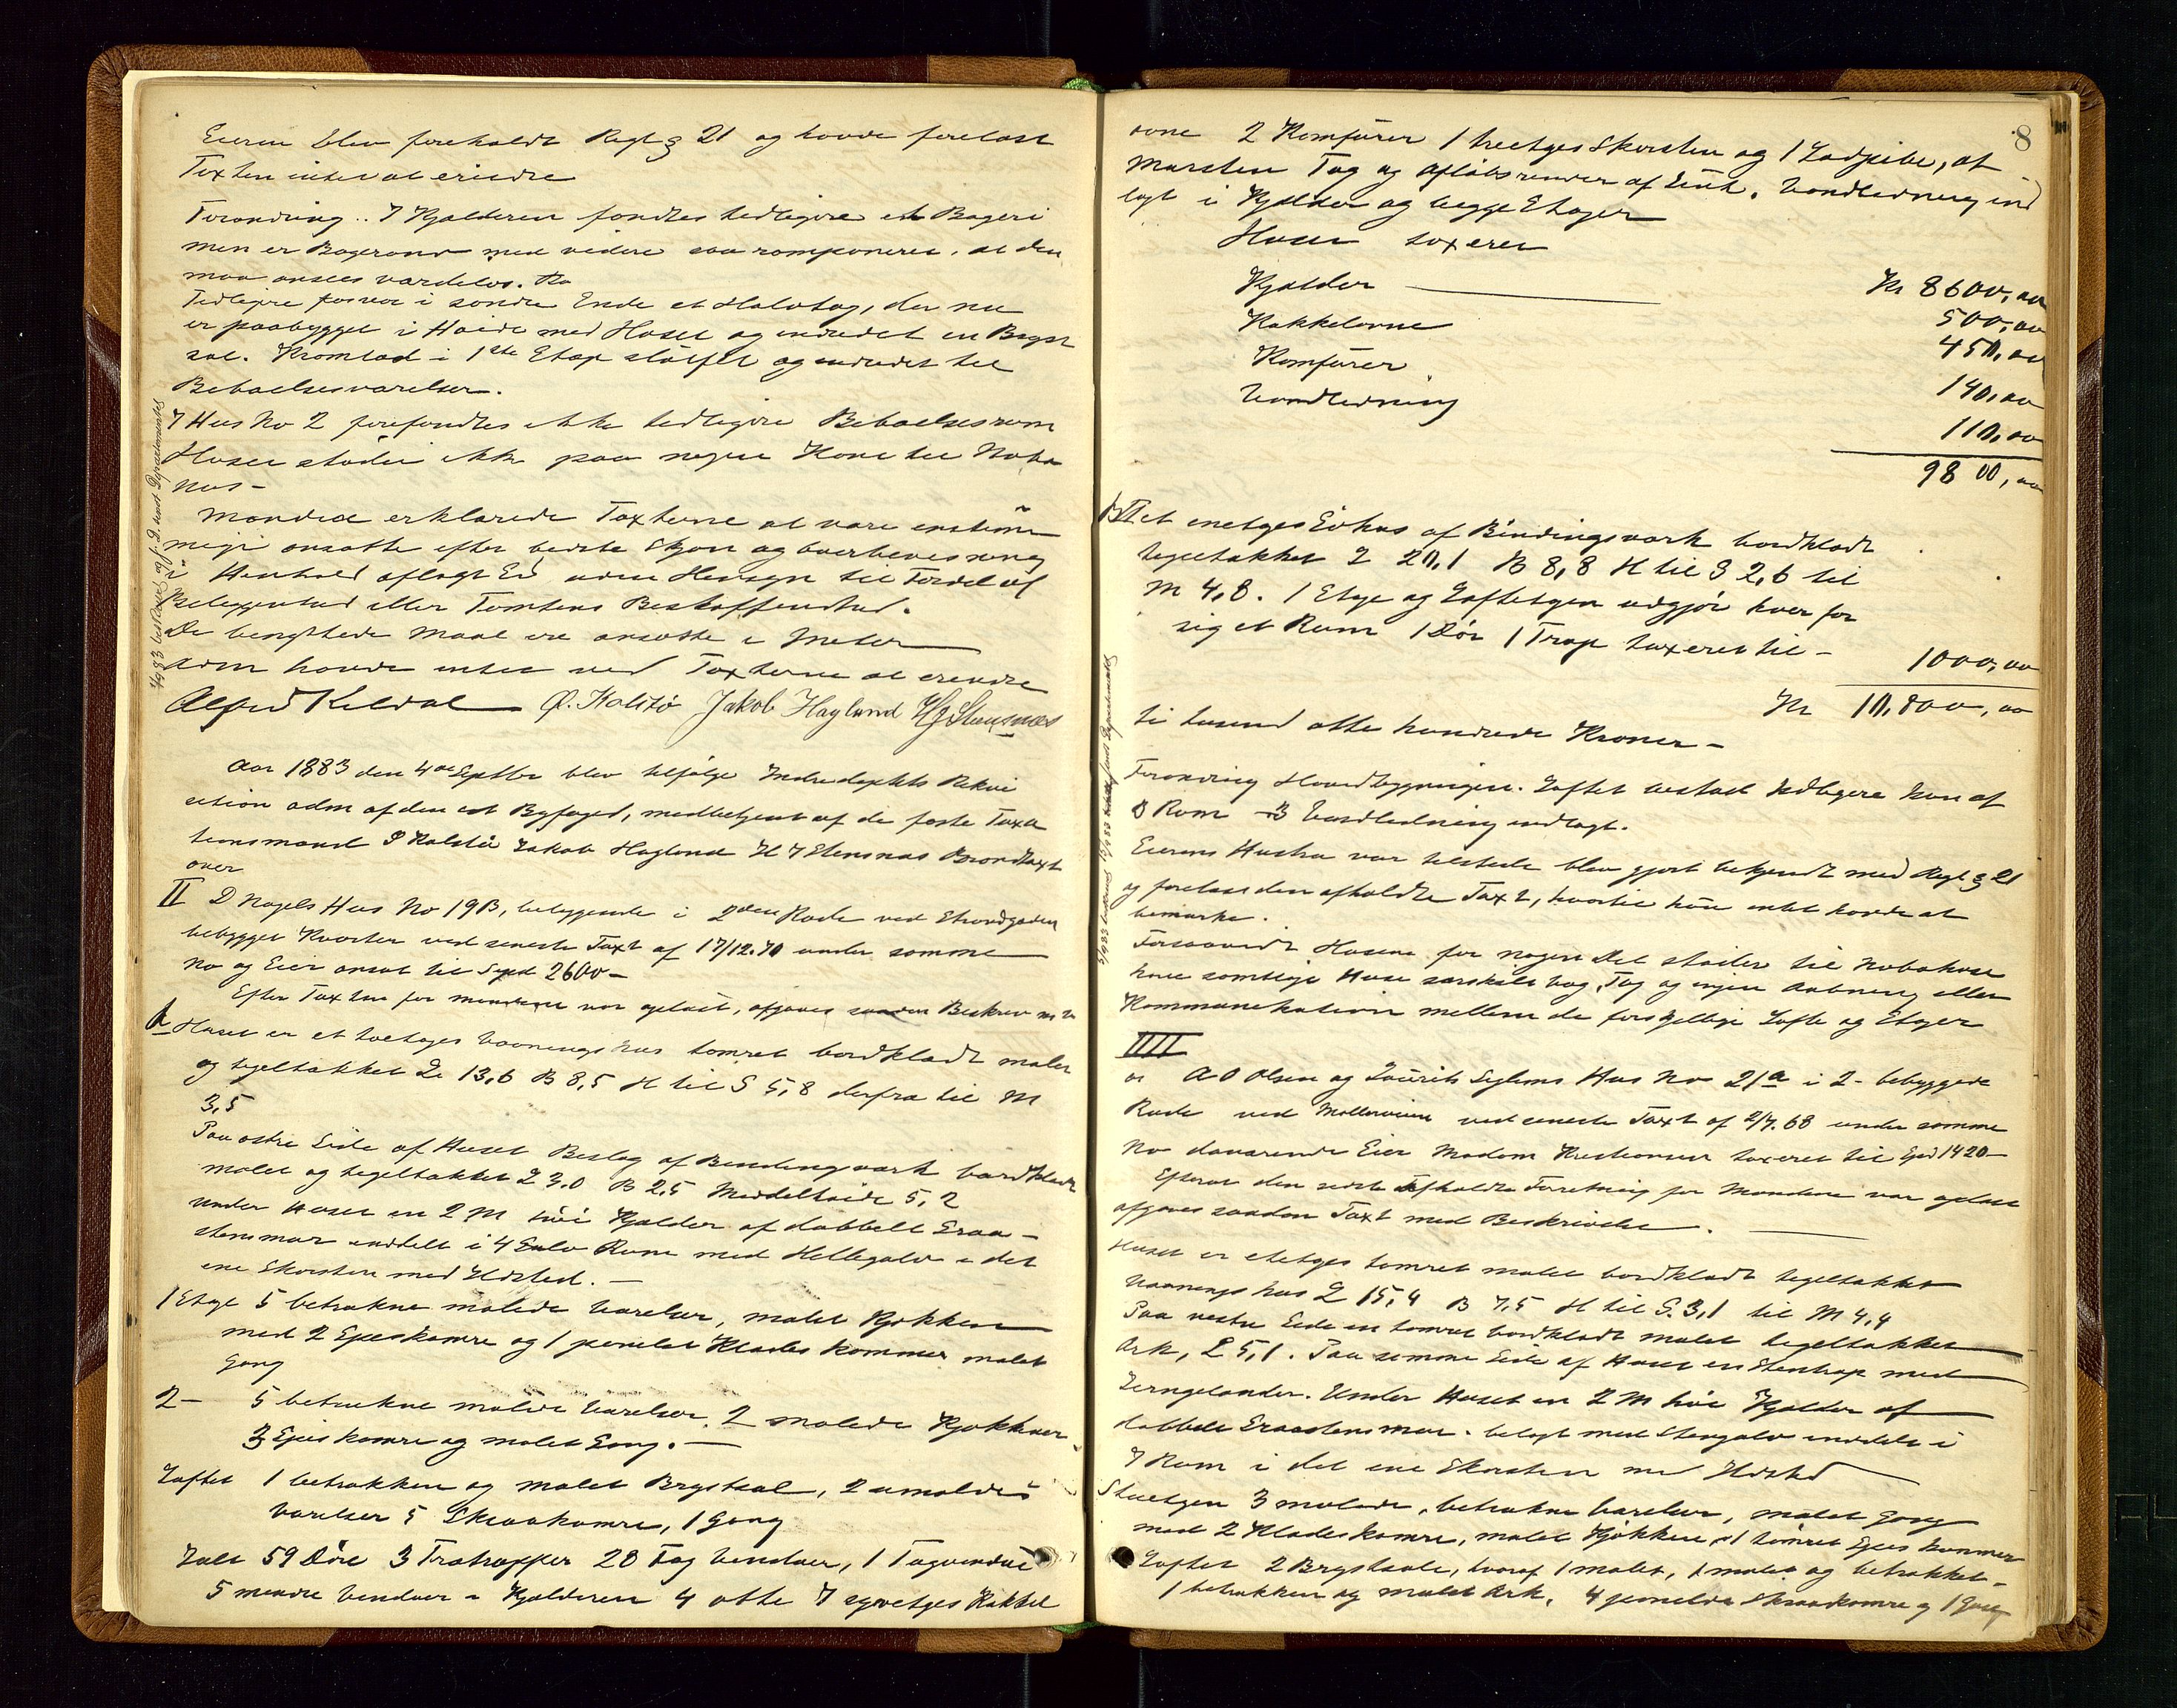 Eieren blev foreholdt Regl § 21 og havde forelæst
Taxten intet at erindre
Forandring.. I Kjælderen fandtes tidligere et Bageri
men er Bagerovn med videre saa ramponeret, at den
maa ansees værdeløs.
Tidligere var i søndre Ende et Halvtag, der nu
er paabygget i Høide med Huset og indredet en Bryst
sal. Kramlad i 1ste Etage sløifet og indredet til
Beboelsesværelser.
I Hus No 2 forefandtes ikke tidligere Beboelsesrum
Huset støder ikke paa nogen Kant til Nabo
hus -
Mændene erklærede Taxterne at være enstem
migt ansatte efter bedste Skjøn og Overbevisning
i Henhold aflagt Ed uden Hensyn til Fordel af
Beliggenhed eller Tomtens Beskaffenhed.
De benyttede Maal ere ansatte i Meter
som havde intet ved Taxterne at erindre
Alfred Kildal Ø. Kalstø Jakob Haglund H J Stensnæs
Aar 1883 den 4de Septbr blev tilfølge Indredepts Rekvi
sition adm af den cst Byfoged, medbetjent af de faste Taxa
tionsmænd Ø Kalstø Jakob Haglund H J Stensnæs Brandtaxt
over
II D Nagels Hus No 19B, beliggende i 2den Rode ved Strandgaden
bebygget Kvarter ved seneste Taxt af 17/12.70 under samme
No og Eier ansat til Spd 2600 -
Efter Taxten for Mændene var oplæst, afgaves saadan Beskrivelse
A Huset er et toetages Vaaningshus tømret bordklædt malet
og tegltækket L 13,6 B 8,5 H til S 5,8 derfra til M
3,5
Paa østre Side af Huset Beslag af Bindingværk bordklædt
malet og tegltækket L 3.0 B 2,5 Middelhøide 5,2
Under Huset en 2 M høi Kjælder af dobbelt Graa-
stensmur inddelt i 4 Rum med Hellegulv i det
ene Skorsten med Ildsted. -
1 Etage 5 betrukne malede Værelser, malet Kjøkken
med 2 Spiskamre og 1 panelet Klædeskammer malet
Gang
2 - 5 betrukne malede Værelser, 2 malede Kjøkkener
3 Spiskamre og malet Gang. -
Loftet 1 betrukken og malet Brystsal, 2 umalede
Værelser 5 Skraakamre, 1 Gang
Ialt 59 Døre 3 Trætrapper 28 Fag Vinduer, 1 Tagvindu
5 mindre Vinduer i Kjælderen 4 otte 7 syvetges Kakkel
8
ovne 2 Komfürer 1 treetges Skorsten og 1 Ladpibe, af
Mursten Tag og Afløbsrender af Sink. Vandledning ind
lagt i Kjælder og begge Etager
Huset taxeres
Kjælder Kr 8600,00
Kakkelovne 500,00
Komfürer 450,00
Vandledning 140,00
110,00
9800,00
B Et enetges Sidehus af Bindingsværk bordklædt
tegltækket L 20,1 B 8,8 H til S 2,6 til
M 4,8. 1 Etge og Loftetgen udgjør hver for
sig et Rum 1 Dør 1 Trap taxeret til - 1000,00
Kr 10,800,00
ti tusend otte hundrede Kroner -
Forandring Hovedbygningen. Loftet bestod tidligere kun af
8 Rum - Vandledning indlagt.
Eierens Hustru var tilstede blev gjort bekjendt med Regl § 21
og forelæst den afholdte Taxt, hvortil hun intet havde at
bemærke.
Forsaavidt Husene for nogen Del støder til Nabohuse
have samtlige Huse særskilt Væg, Tag og ingen Aabning eller
Kommunikation mellem de forskjellige Lofte og Etger
IIII
A O Olsen og Laurits Seglems Hus No 21a i 2- bebyggede
Rode ved Mølleveien ved seneste Taxt af 2/7.68 under samme
No daværende Eier Madam Kristiansen taxeret til Spd 1420 -
Efterat den sidst afholdte Forretning for Mændene var oplæst
afgaves saadan Taxt med Beskrivelse.
Huset er etetges tømret malet bordklædt tegltækket
Vaaningshus L 15,4 B 7,5 H til S. 3,1 til M 4,4
Paa vestre Side en tømret bordklædt malet tegltækket
Ark, L 5,1. Paa samme Side af Huset en Stentrap med
Jerngelænder. Under Huset en 2 M høi Kjælder af
dobbelt Graastensmur. belagt med Stengulv inddelt i
7 Rum i det ene Skorsten med Ildsted
Stuetgen 3 malede, betrukne Værelser, malet Gang
med 2 Klædeskamre, malet Kjøkken, 1 tømret Spiskammer
Loftet 2 Brystsale, hvoraf 1 malet, 1 malet og betrukket -
1 betrukken og malet Ark, 4 panelede Skraakamre og 1 Gang